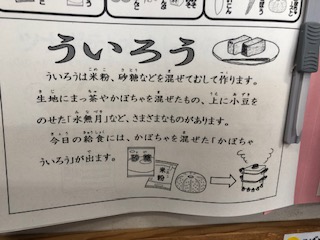 ういろう
ういろうは米粉、砂糖などを混ぜてむして作ります。
生地にまっ茶やかぼちゃを混ぜたもの、上に小豆を
のせた「水無月」など、さまざまなものがあります。
今日の給食には、かぼちゃを混ぜた「かぼちゃ
ういろう」が出ます。
砂糖
米粉